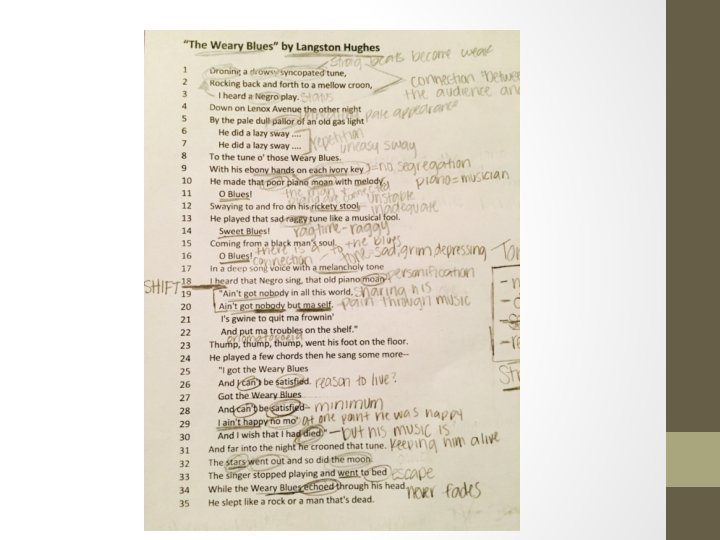 "The Weary Blues" by Langston Hughes
strong beats become weak
1 Droning a drowsy syncopated tune,
2 Rocking back and forth to a mellow croon,
connection "between
3 I heard a Negro play.
the audience and
4 Down on Lenox Avenue the other night
5 By the pale dull pallor of an old gas light
pale appearance
6 He did a lazy sway ....
repetition
7 He did a lazy sway ....
uneasy sway
8 To the tune o' those Weary Blues.
9 With his ebony hands on each ivory key
=no segregation
10 He made that poor piano moan with melody.
piano=musician
11 O Blues!
unstable
12 Swaying to and fro on his rickety stool
inadequate
13 He played that sad raggy tune like a musical fool.
14 Sweet Blues!
ragtime-raggy
15 Coming from a black man's soul.
there is a
connection to the blues
16 O Blues!
tone-sad, grim, depressing
17 In a deep song voice with a melancholy tone
personification
SHIFT
18 I heard that Negro sing, that old piano moan
19 "Ain't got nobody in all this world,
sharing his
20 Ain't got nobody but ma self.
pain through music
21 I's gwine to quit ma frownin'
22 And put ma troubles on the shelf."
onomatopoeia
23 Thump, thump, thump, went his foot on the floor.
24 He played a few chords then he sang some more--
25 "I got the Weary Blues
26 And I can't be satisfied.
reason to live?
27 Got the Weary Blues
28 And can't be satisfied
- minimum
29 I ain't happy no mo'
at one point he was happy
30 And I wish that I had died."
—but his music is
31 And far into the night he crooned that tune.
keeping him alive
32 The stars went out and so did the moon.
33 The singer stopped playing and went to bed
escape
34 While the Weary Blues echoed through his head.
never fades
35 He slept like a rock or a man that's dead.